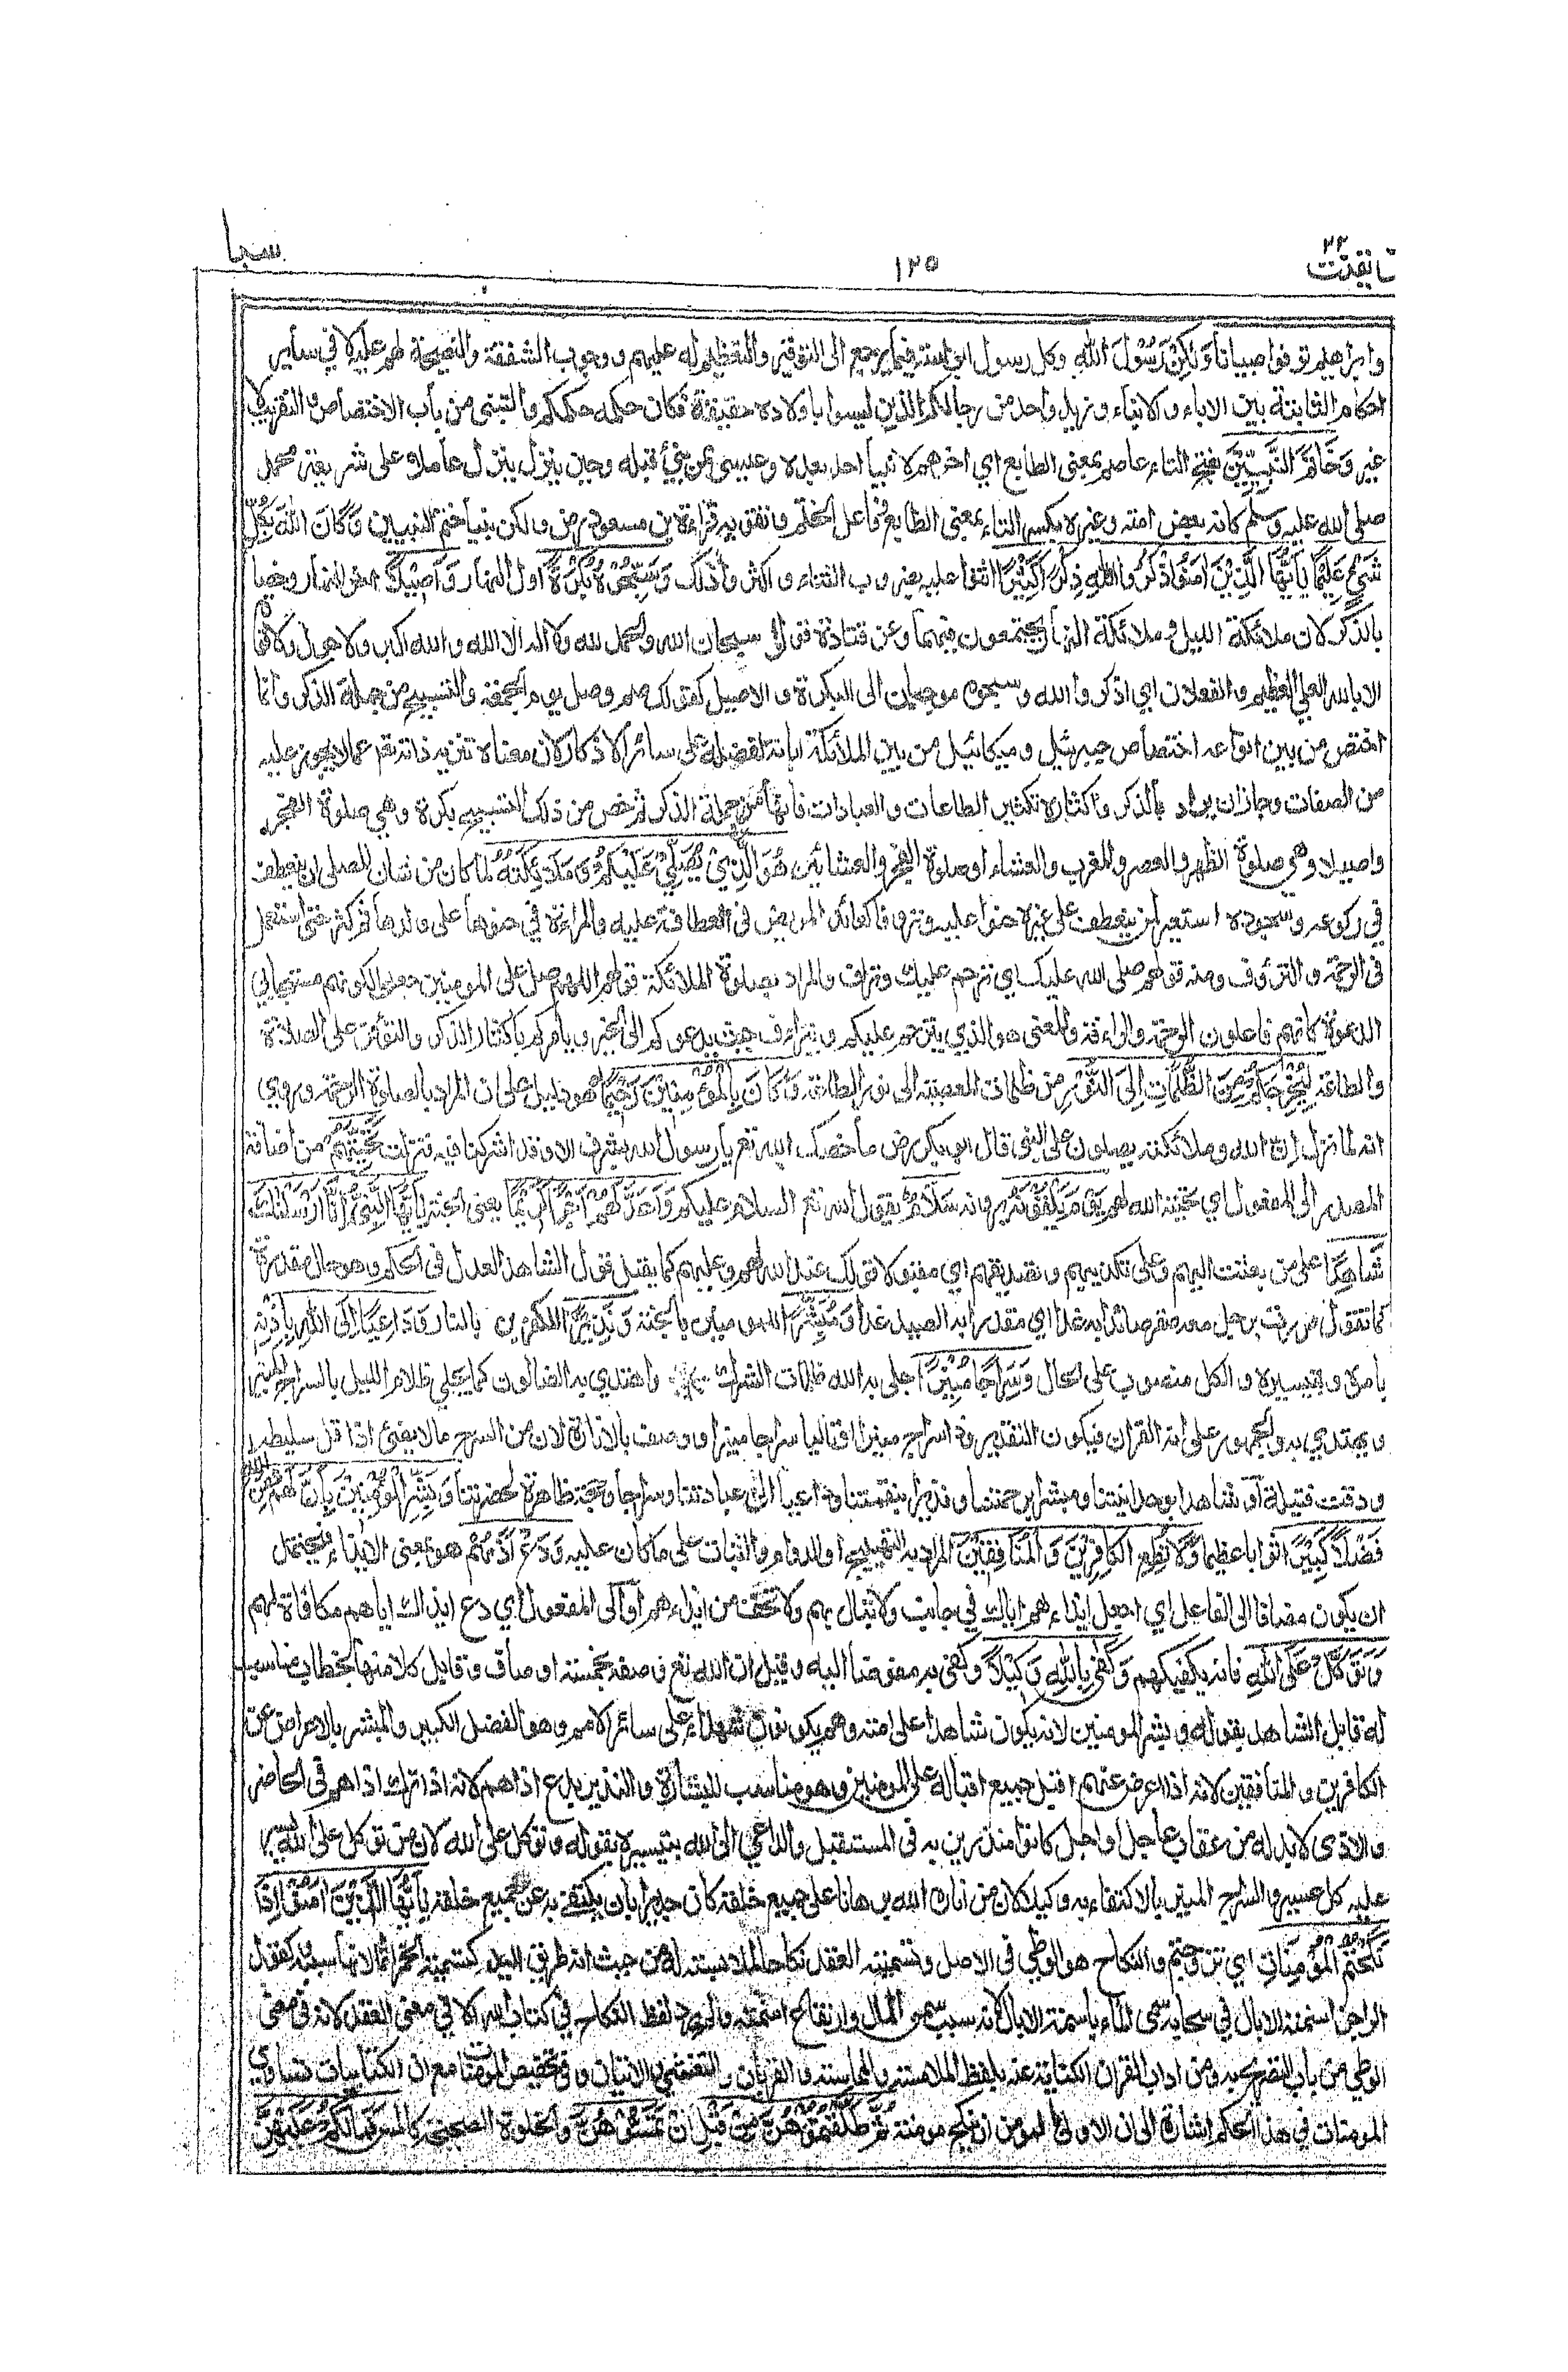 ٢٢
١٢٥
سبا
وابراهيم توفوا صبيانا وَلٰكِنْ رَسُوْلَ اللّٰهِ وكل رسول ابو امته فيما يرجع الى التوقير والتعظيم له عليهم ووجوب الشفقة والنصيحة لهم عليه لا في سائر
احكام الثابتة بين الاباء والابناء وزيد واحد من رجالكم الذين ليسوا باولاده حقيقة فكان حكمه حكمكم والتبني من باب الاختصاص والتقريب لا
غير وَخَاتَمَ النَّبِيِّيْنَ بفتح التاء عاصم بمعنى الطابع اي اخرهم لا ينبأ احد بعده وعيسى ممن نبئ قبله وحين ينزل ينزل عاملا على شريعة محمد
صلى الله عليه وسلم كانه بعض امته وغيره بكسر التاء بمعنى الطابع وفاعل الختم وتقويه قراءة ابن مسعود رض ولكن نبيا ختم النبيين وَكَانَ اللّٰهُ بِكُلِّ
شَيْءٍ عَلِيْمًا يٰاَيُّهَا الَّذِيْنَ اٰمَنُوْا اذْكُرُوا اللّٰهَ ذِكْرًا كَثِيْرًا اثنوا عليه بضروب الثناء واكثروا ذلك وَسَبِّحُوْهُ بُكْرَةً اول النهار وَاَصِيْلًا اخر النهار وخصا
بالذكر لان ملائكة الليل وملائكة النهار يجتمعون فيهما وعن قتادة قولوا سبحان الله والحمد لله ولا اله الا الله والله اكبر ولا حول ولا قوة
الا بالله العلي العظيم والفعلان اي اذكروا الله وسبحوه موجهان الى البكرة والاصيل كقولك صم وصل يوم الجمعة والتسبيح من جملة الذكر وانما
اختص من بين انواعه اختصاص جبرئيل وميكائيل من بين الملائكة ابانة لفضله على سائر الاذكار لان معناه تنزيه ذاته تع عما لا يجوز عليه
من الصفات وجاز ان يراد بالذكر واكثاره تكثير الطاعات والعبادات فانها من جملة الذكر ثم خص من ذلك التسبيح بكرة وهي صلوة الفجر
واصيلا وهي صلوة الظهر والعصر والمغرب والعشاء او صلوة الفجر والعشائين هُوَ الَّذِيْ يُصَلِّيْ عَلَيْكُمْ وَمَلٰٓئِكَتُهُ لما كان من شان المصلى ان ينعطف
في ركوعه وسجوده استعير لمن ينعطف على غيره حنوا عليه وترؤفا كعائد المريض في انعطافه عليه والمراة في حنوها على ولدها ثم كثر حتى استعمل
في الرحمة والترؤف ومنه قولهم صلى الله عليك اي ترحم عليك وترأف والمراد بصلوة الملائكة قولهم اللهم صل على المومنين جعلوا لكونهم مستجابي
الدعوة كانهم فاعلون الرحمة والراءفة والمعنى هو الذي يترحم عليكم ويتراءف حيث يدعوكم الى الخير ويامركم باكثار الذكر والتوفر على الصلاة
والطاعة لِيُخْرِجَكُمْ مِنَ الظُّلُمَاتِ اِلَى النُّوْرِ من ظلمات المعصية الى نور الطاعة وَكَانَ بِالْمُؤْمِنِيْنَ رَحِيْمًا هو دليل على ان المراد بالصلوة الرحمة وروي
انه لما نزل ان الله وملائكته يصلون على النبي قال ابو بكر رض ما خصك الله تع يا رسول الله بشرف الا وقد اشركنا فيه فنزلت تَحِيَّتُهُمْ من اضافة
المصدر الى المفعول اي تحية الله لهم يَوْمَ يَلْقَوْنَهُ يرونه سَلَامٌ يقول الله تع السلام عليكم وَاَعَدَّ لَهُمْ اَجْرًا كَرِيْمًا يعنى الجنة يٰاَيُّهَا النَّبِيُّ اِنَّا اَرْسَلْنٰكَ
شَاهِدًا على من بعثت اليهم وعلى تكذيبهم وتصديقهم اي مقبولا قولك عند الله لهم وعليهم كما يقبل قول الشاهد العدل في الحكم وهو حال مقدرة
كما تقول مررت برجل معه صقر صائدا به غدا اي مقدرا به الصيد غدا وَمُبَشِّرًا المومنين بالجنة وَنَذِيْرًا الكفرين بالنار وَدَاعِيًا اِلَى اللّٰهِ بِاِذْنِهِ
بامره وبتيسيره والكل منصوب على الحال وَسِرَاجًا مُنِيْرًا جلى به الله ظلمات الشرك واهتدي به الضالون كما يجلي ظلام الليل بالسراج المنير
ويهتدي به والجمهور على انه القران فيكون التقدير وذا سراج منير او تاليا سراجا منيرا ووصف بالانارة لان من السرج ما لا يضئ اذا قل سليطه
ودقت فتيلة او شاهدا بوحدانيتنا ومبشرا برحمتنا ونذيرا بنقمتنا وداعيا الى عبادتنا وسراجا وحجة ظاهرة لحضرتنا وَبَشِّرِ الْمُؤْمِنِيْنَ بِاَنَّ لَهُمْ مِنَ اللّٰهِ
فَضْلًا كَبِيْرًا ثوابا عظيما وَلَا تُطِعِ الْكَافِرِيْنَ وَالْمُنَافِقِيْنَ المراد به التهييج او الدوام والثبات على ما كان عليه وَدَعْ اَذٰىهُمْ هو بمعنى الايذاء فيحتمل
ان يكون مضافا الى الفاعل اي اجعل ايذاءهم اياك في جانب ولا تبال بهم ولا تخف من ايذاءهم او الى المفعول اي دع ايذاك اياهم مكافاة لهم
وَتَوَكَّلْ عَلَى اللّٰهِ فانه يكفيكهم وَكَفٰى بِاللّٰهِ وَكِيْلًا وكفى به مفوضا اليه وقيل ان الله تع وصفه بخمسة اوصاف وقابل كلا منها بخطاب مناسب
له قابل الشاهد بقوله وبشر المومنين لانه يكون شاهدا على امته وهم يكونون شهداء على سائر الامم وهو الفضل الكبير والمبشر بالاعراض عن
الكافرين والمنافقين لانه اذا اعرض عنهم اقبل جميع اقباله على المومنين وهو مناسب للبشارة والنذير بدع اذاهم لانه اذا ترك اذاهم في الحاضر
والاذى لا بد له من عقاب عاجل او اجل كانوا منذرين به في المستقبل والداعي الى الله بتيسيره بقوله وتوكل على الله لان من توكل على الله يسر
عليه كل عسير والسراج المنير بالاكتفاء به وكيلا لان من اناره الله برهانا على جميع خلقه كان جديرا بان يكتفى به عن جميع خلقه يٰاَيُّهَا الَّذِيْنَ اٰمَنُوْا اِذَا
نَكَحْتُمُ الْمُؤْمِنَاتِ اي تزوجتم والنكاح هو الوطي في الاصل وتسمية العقد نكاحا لملابسته له من حيث انه طريق اليه كتسمية الخمر اثما لانها سببه وكقول
الراجز اسنمة الابال في سحابه سمى الماء باسنمة الابال لانه سبب سمن المال وارتفاع اسنمته ولم يرد لفظ النكاح في كتاب الله الا في معنى العقد لانه في معنى
الوطي من باب التصريح به ومن اداب القران الكناية عنه بلفظ الملامسة والمماسة والقربان والتغشي والاتيان وفي تخصيص المومنات مع ان الكتابيات تساوي
المومنات في هذا الحكم اشارة الى ان الاولى للمومن ان ينكح مومنة ثُمَّ طَلَّقْتُمُوْهُنَّ مِنْ قَبْلِ اَنْ تَمَسُّوْهُنَّ والخلوة الصحيحة كالمس فَمَا لَكُمْ عَلَيْهِنَّ